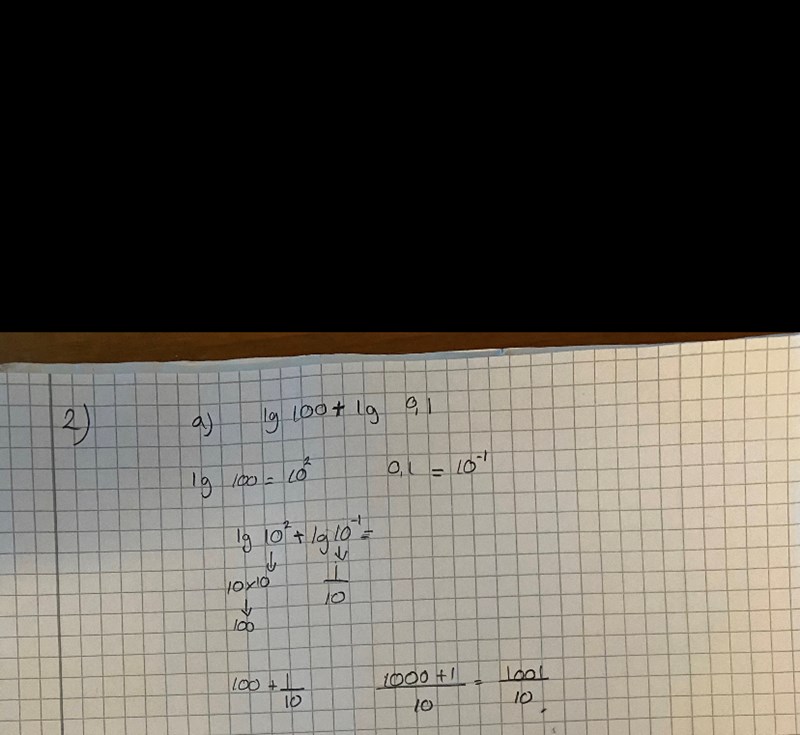 2) a) lg 100 + lg 0,1
lg 100 = 10² 0,1 = 10⁻¹
lg 10² + lg 10⁻¹ =
↓ ↓
10×10 1/10
↓
100
100 + 1/10 (1000 + 1)/10 = 1001/10